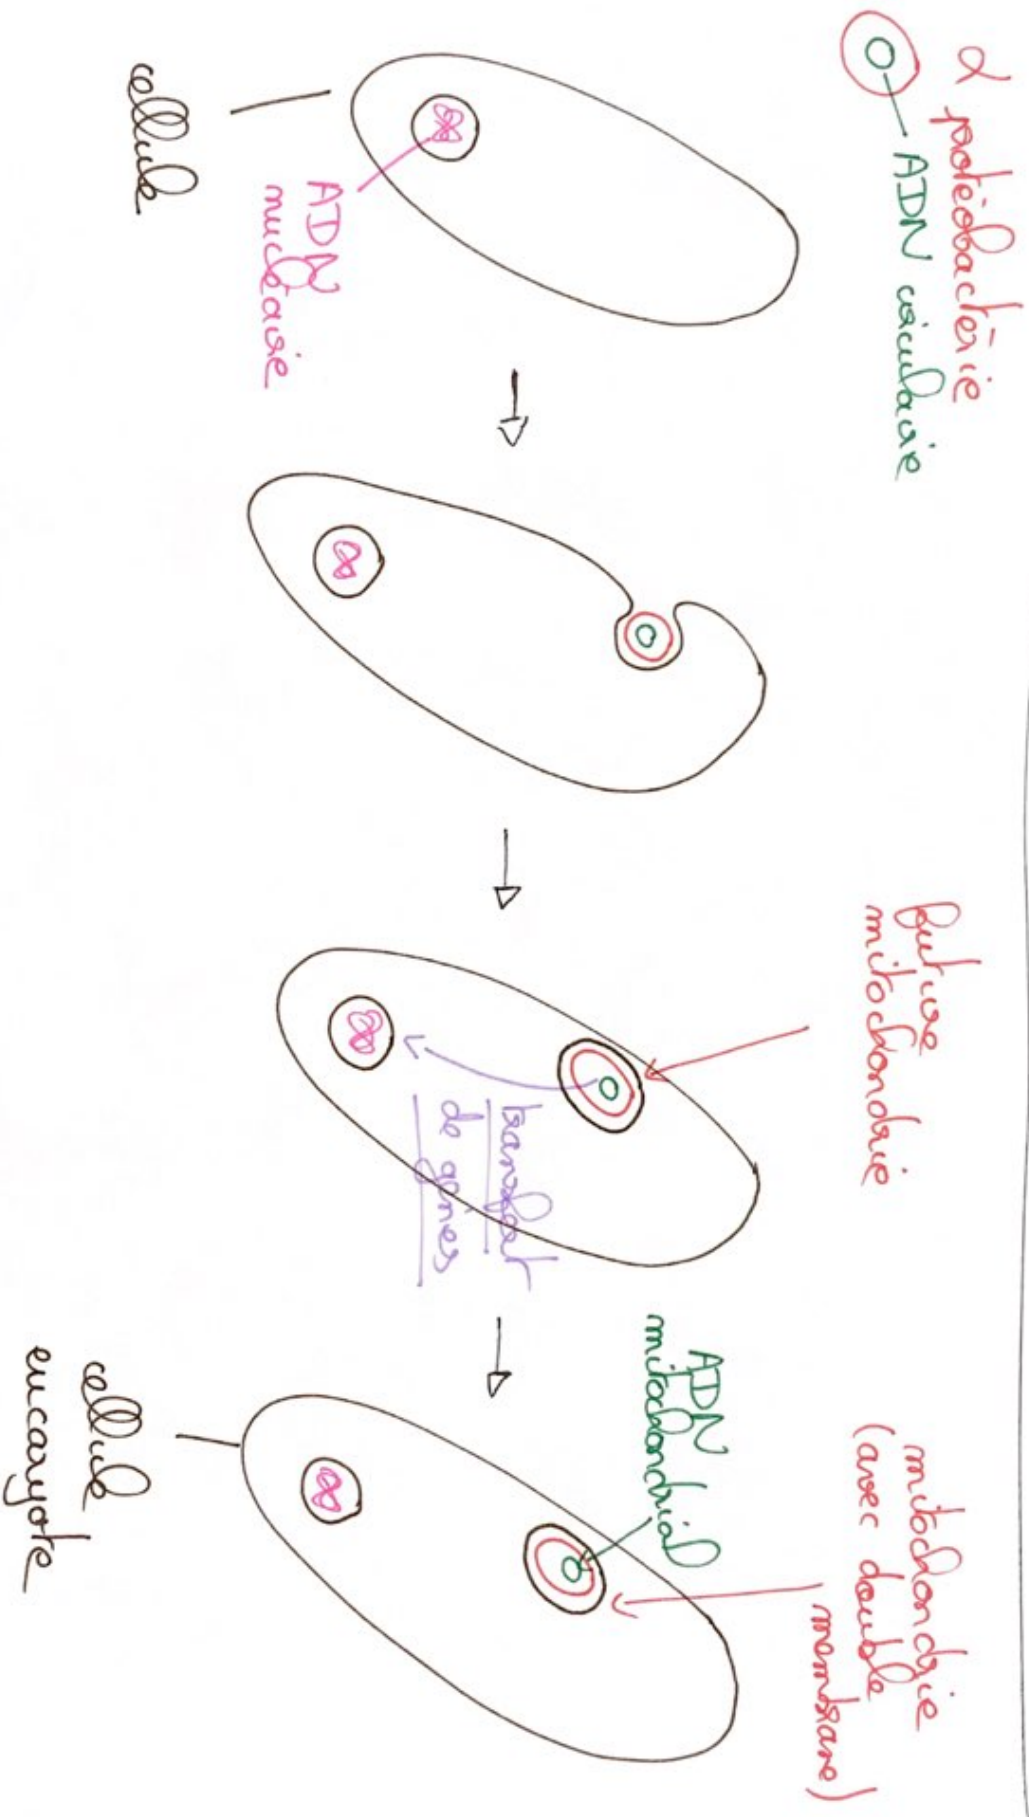 α protéobactérie
ADN circulaire
ADN
nucléaire
cellule
future
mitochondrie
transfert
de gènes
mitochondrie
(avec double
membrane)
ADN
mitochondrial
cellule
eucaryote